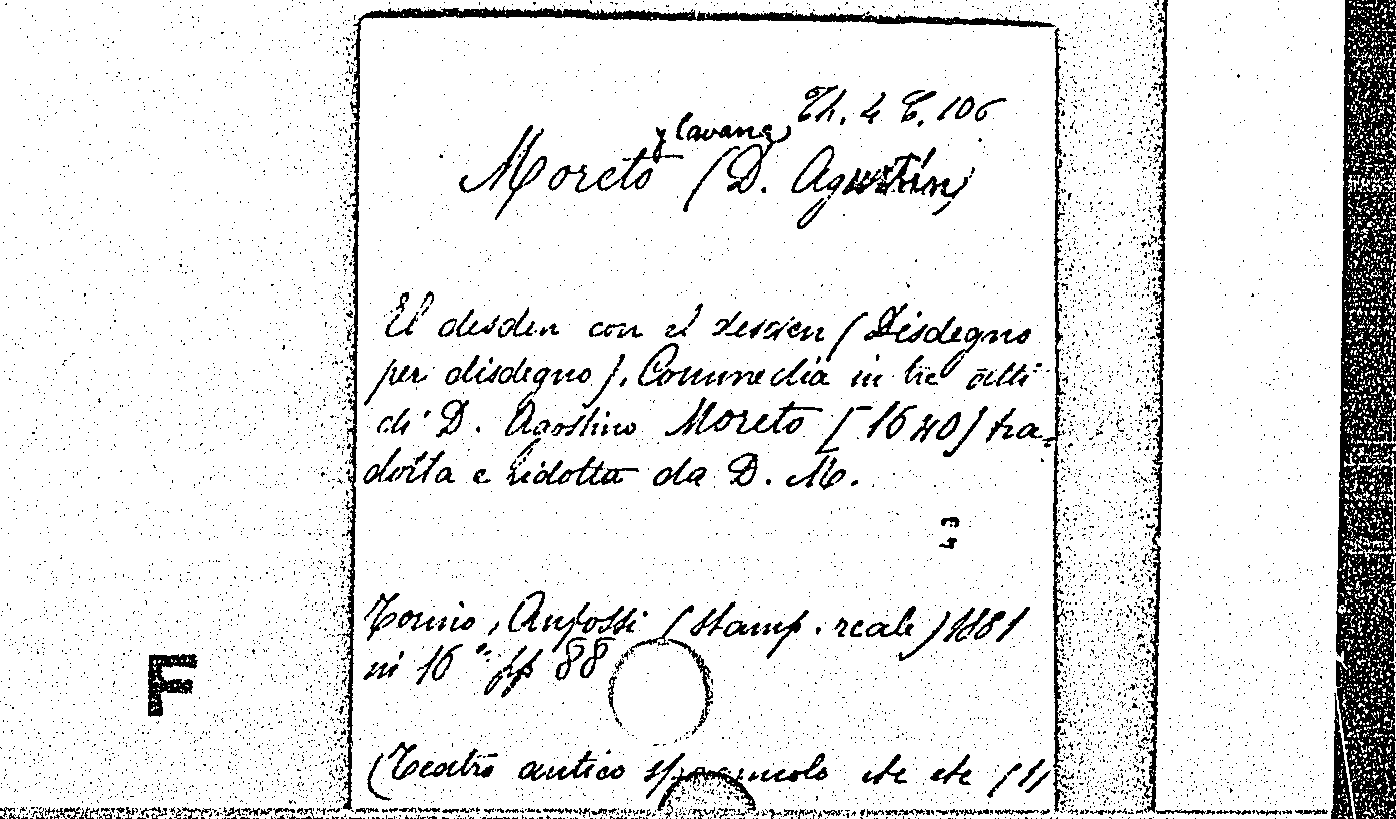 Th. 4 C. 106
y Cavana
Moreto (D. Agustín)
El desden con el desden (Disdegno
per disdegno). Commedia in tre atti
di D. Agostino Moreto [1640] tra=
dotta e ridotta da D. M.
Torino, Anfossi (stamp. reale) 1881
in 16° pp 88
F
(Teatro antico spagnuolo etc etc